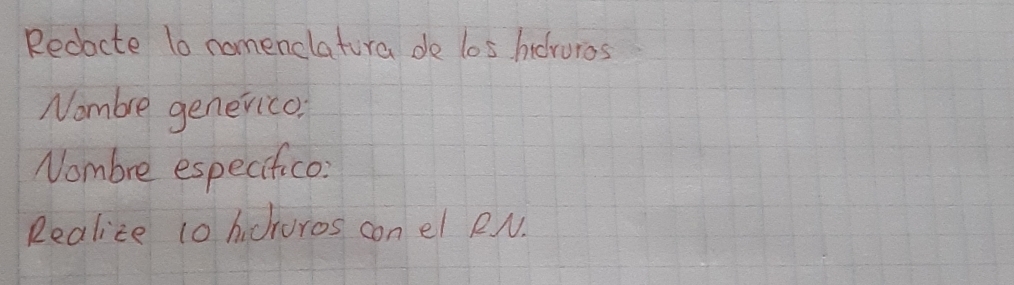 Redacte la nomenclatura de los hidruros
Nombre genérico:
Nombre especifico:
Realize 10 hidruros con el R.N.